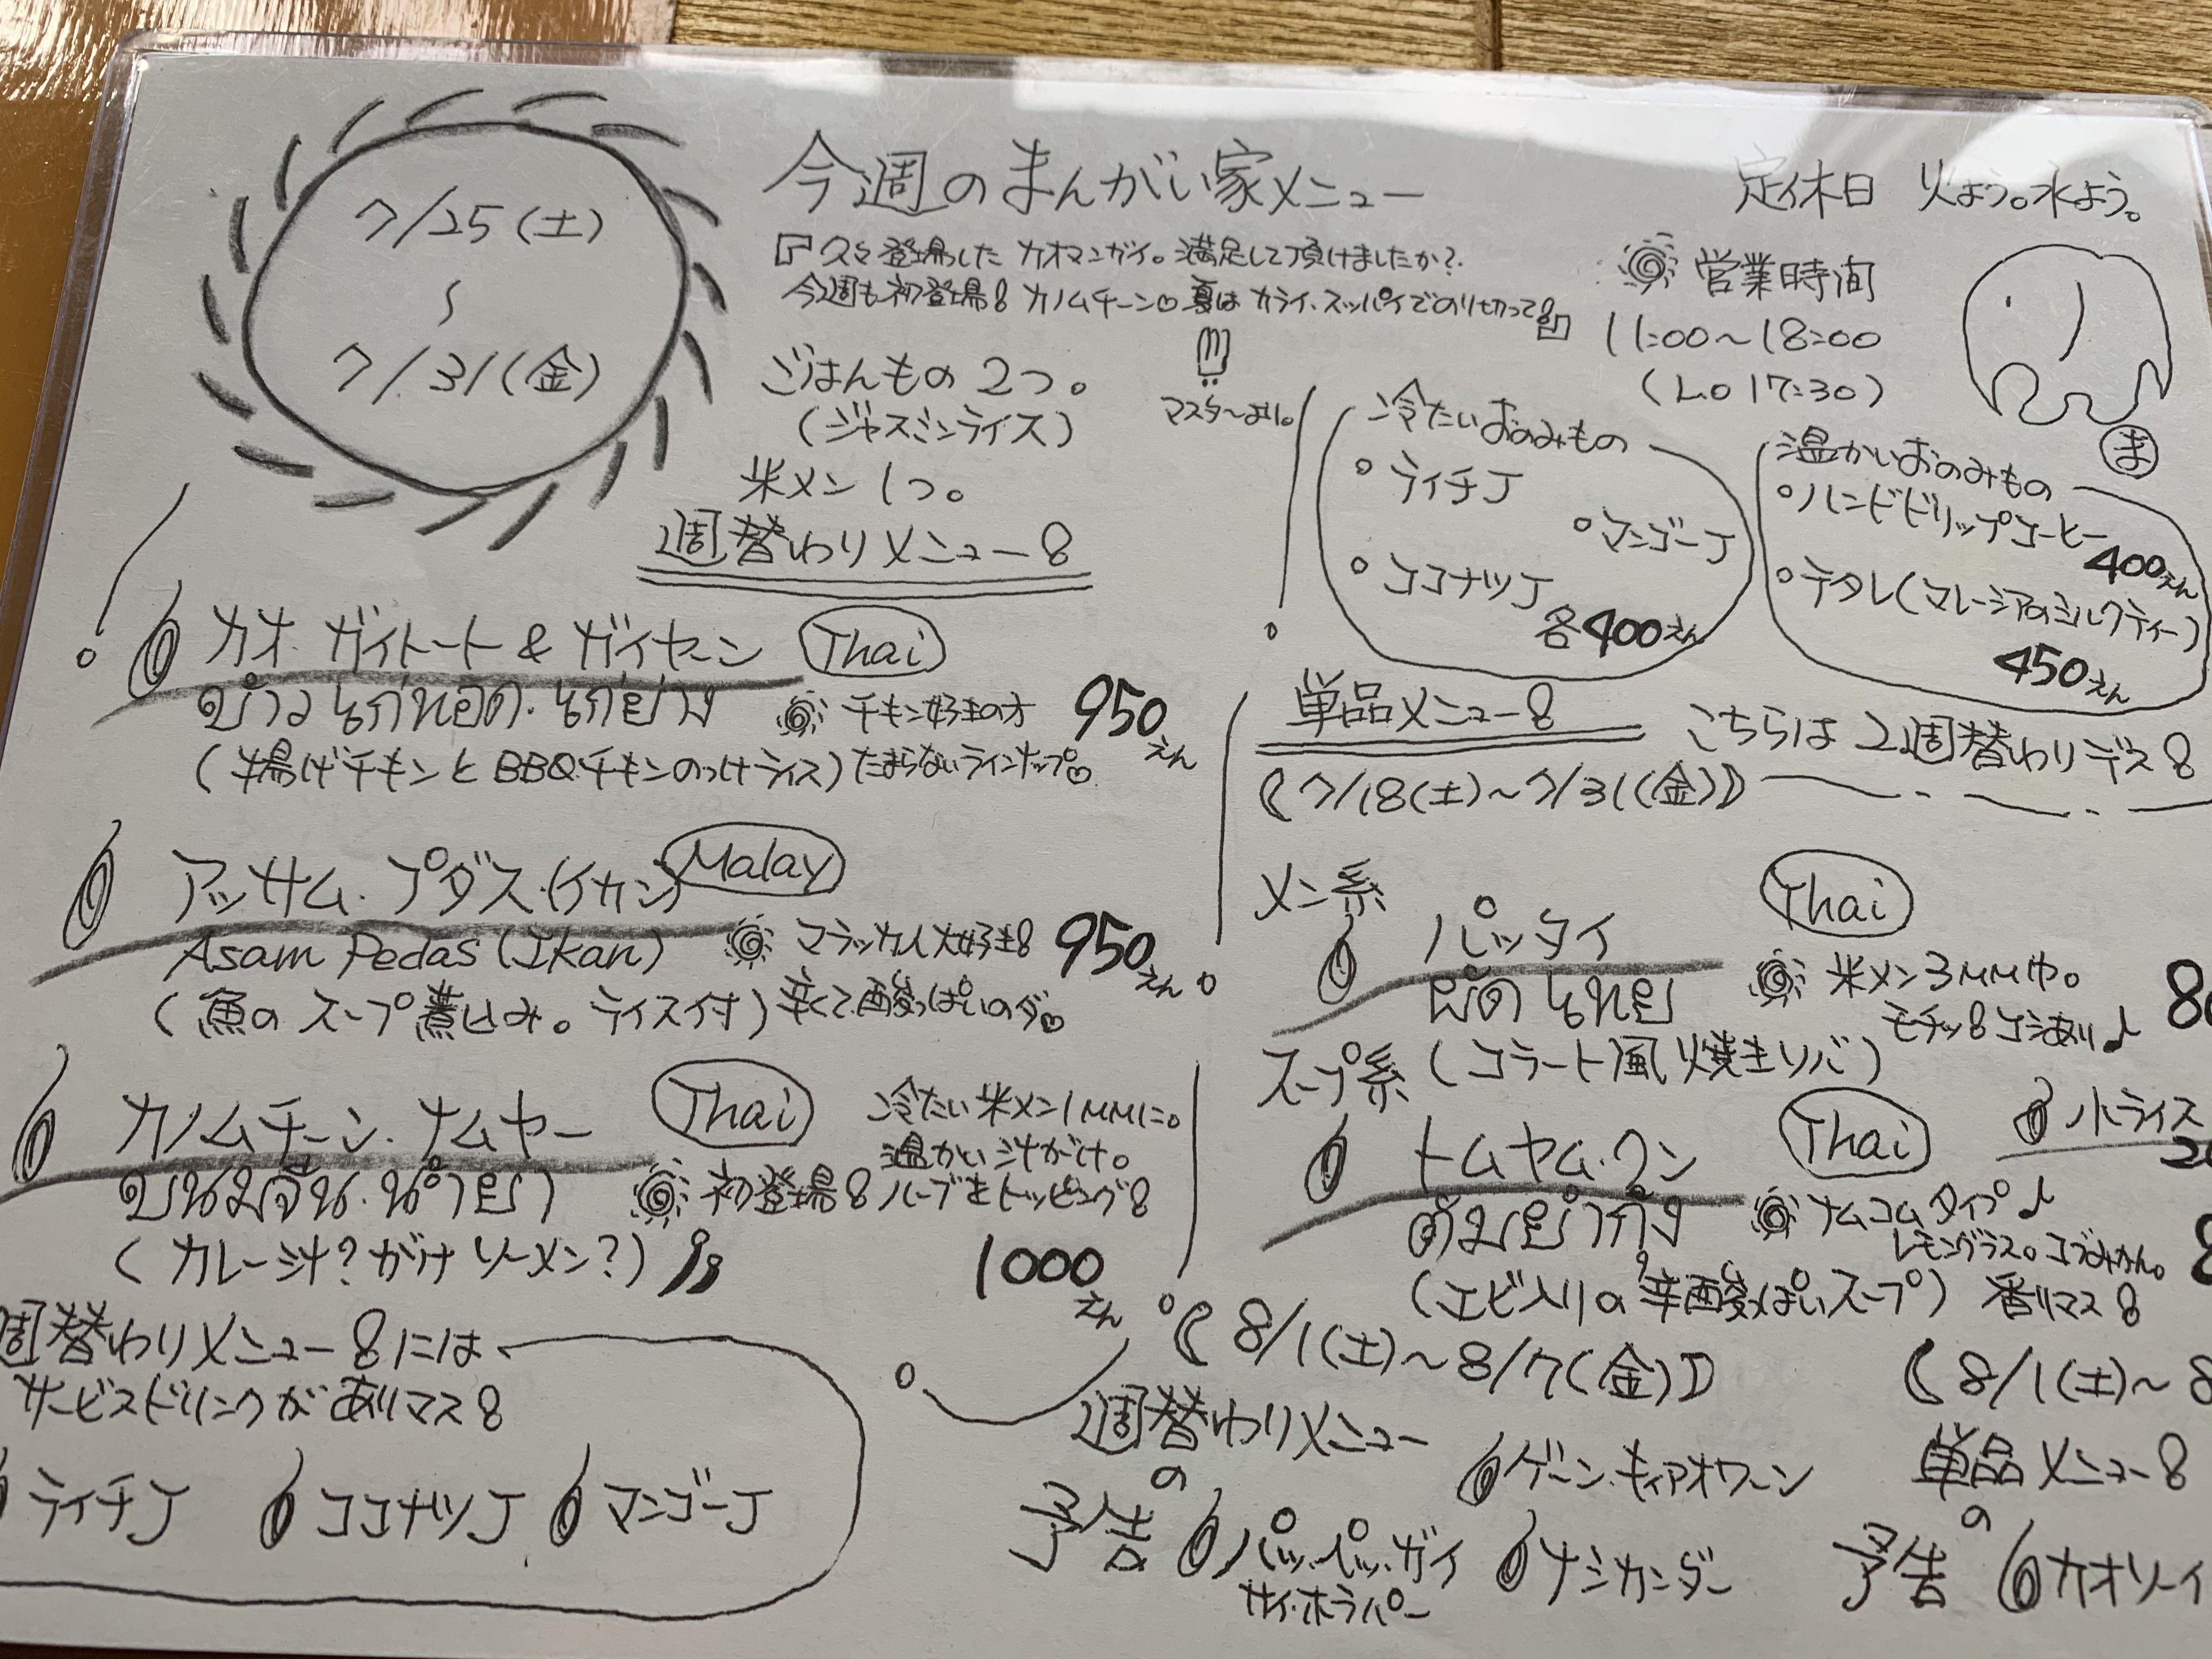 7/25(土)
〜
7/31(金)
今週のまんがい家メニュー
『久々登場した カオマンガイ。満足して頂けましたか?
今週も初登場! カノムチーン♡ 夏は カライ、スッパイでのり切って!』
マスターより。
ごはんもの 2つ。
(ジャスミンライス)
米メン 1つ。
定休日 火よう。水よう。
営業時間
11:00〜18:00
(L.O 17:30)
ま
週替わりメニュー!
カオ・ガイトート & ガイヤーン Thai
ข้าวไก่ทอด・ไก่ย่าง
チキン好きの方
(揚げチキンと BBQチキンのっけライス) たまらないラインナップ♡
950えん
アッサム・プダス・(イカン) Malay
Asam Pedas (Ikan)
マラッカ人大好き!
(魚の スープ煮込み。ライス付) 辛くて酸っぱいのダ♡
950えん
カノムチーン・ナムヤー Thai
ขนมจีน・น้ำยา
冷たい米メン1MMに。
温かい汁がけ。
初登場! ハーブをトッピング!
(カレー汁?がけ ソーメン?)
1000えん
週替わりメニュー!には
サービスドリンクがありマス!
ライチJ ココナツJ マンゴーJ
冷たいおのみもの
・ライチJ
・マンゴーJ
・ココナツJ
各400えん
温かいおのみもの
・ハンドドリップコーヒー
400えん
・テタレ(マレーシアのミルクティー)
450えん
単品メニュー! こちらは 2週替わりデス!
(7/18(土)〜7/31(金))
メン系
パッタイ Thai
ผัดไทย
米メン3MM巾。
モチッ!コシあり♪
(コラート風焼きソバ)
スープ系
トムヤム・クン Thai
ต้มยำกุ้ง
小ライス
ナムコムタイプ♪
レモングラス。コブみかん。
(エビ入りの辛酸っぱいスープ) 香りマス!
(8/1(土)〜8/7(金))
週替わりメニュー
の
予告
ゲーン・キィアオワーン
パッ・ペッ・ガイ
サイ・ホラパー
ナシカンダー
(8/1(土)〜8
単品メニュー!
の
予告 カオソーイ